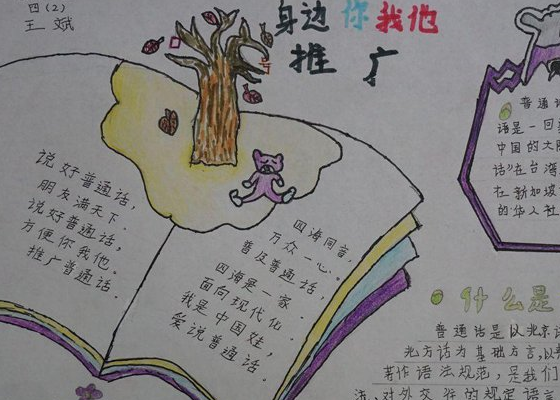 四(2)
王斌
身边你我他
推广
说好普通话，
朋友满天下．
说好普通话，
方便你我他．
推广普通话．
四海同音，
万众一心。
普及普通话，
四海是一家．
面向现代化．
我是中国娃，
爱说普通话．
普通话
语是一
中国的大陆
话”在台湾
在新加坡
的华人社
什么是
普通话是以北京语
北方话为基础方言,以
著作语法规范，是我们
对外交往的规定语言